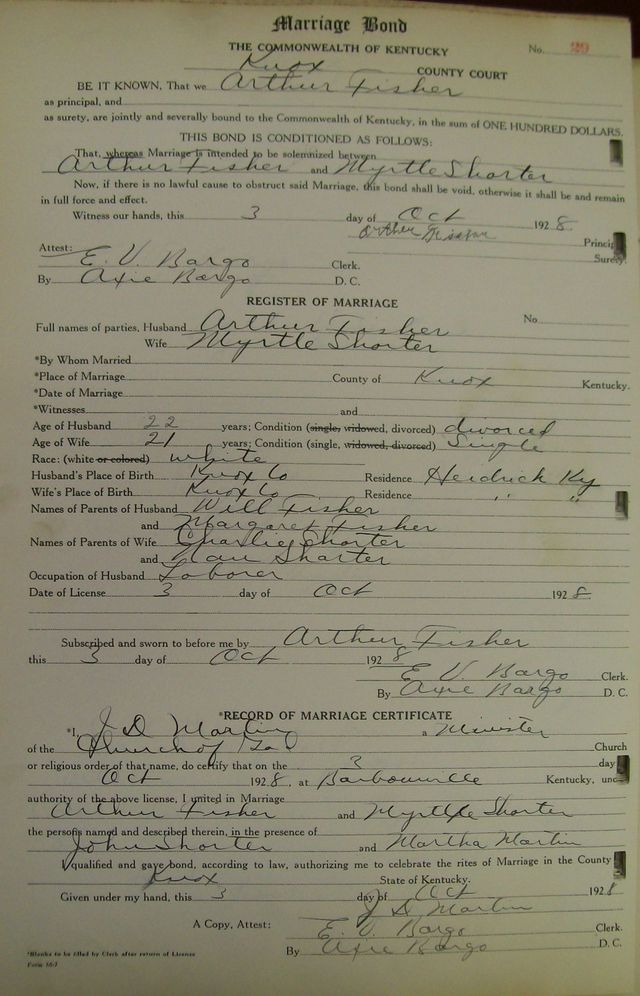 Marriage Bond
THE COMMONWEALTH OF KENTUCKY No. 29
Knox COUNTY COURT
BE IT KNOWN, That we Arthur Fisher
as principal, and
as surety, are jointly and severally bound to the Commonwealth of Kentucky, in the sum of ONE HUNDRED DOLLARS.
THIS BOND IS CONDITIONED AS FOLLOWS:
That, whereas Marriage is intended to be solemnized between
Arthur Fisher and Myrtle Shorter
Now, if there is no lawful cause to obstruct said Marriage, this bond shall be void, otherwise it shall be and remain
in full force and effect.
Witness our hands, this 3 day of Oct 1928.
Arther Principal
Attest: Surety.
E. V. Bargo Clerk.
By Axie Bargo D. C.
REGISTER OF MARRIAGE
Full names of parties, Husband Arthur Fisher No.
Wife Myrtle Shorter
*By Whom Married
*Place of Marriage County of Knox Kentucky.
*Date of Marriage
*Witnesses and
Age of Husband 22 years; Condition (single, widowed, divorced) divorced
Age of Wife 21 years; Condition (single, widowed, divorced) Single
Race: (white or colored) white
Husband's Place of Birth Knox Co Residence Heidrick Ky
Wife's Place of Birth Knox Co Residence " "
Names of Parents of Husband Will Fisher
and Margaret Fisher
Names of Parents of Wife Charlie Shorter
and Nan Sharter
Occupation of Husband Laborer
Date of License 3 day of Oct 1928.
Subscribed and sworn to before me by Arthur Fisher
this 3 day of Oct 1928
E. V. Bargo Clerk.
By Axie Bargo D. C.
*RECORD OF MARRIAGE CERTIFICATE
*I, J D Martin a Minister
of the Church of God Church
or religious order of that name, do certify that on the 3 day
Oct 1928, at Barbourville Kentucky, und
authority of the above license, I united in Marriage
Arthur Fisher and Myrtle Shorter
the persons named and described therein, in the presence of
John Shorter and Martha Martin
I qualified and gave bond, according to law, authorizing me to celebrate the rites of Marriage in the County
Knox State of Kentucky.
Given under my hand, this 3 day of Oct 1928
J D Martin
A Copy, Attest: E. V. Bargo Clerk.
By Axie Bargo D. C.
*Blanks to be filled by Clerk after return of License